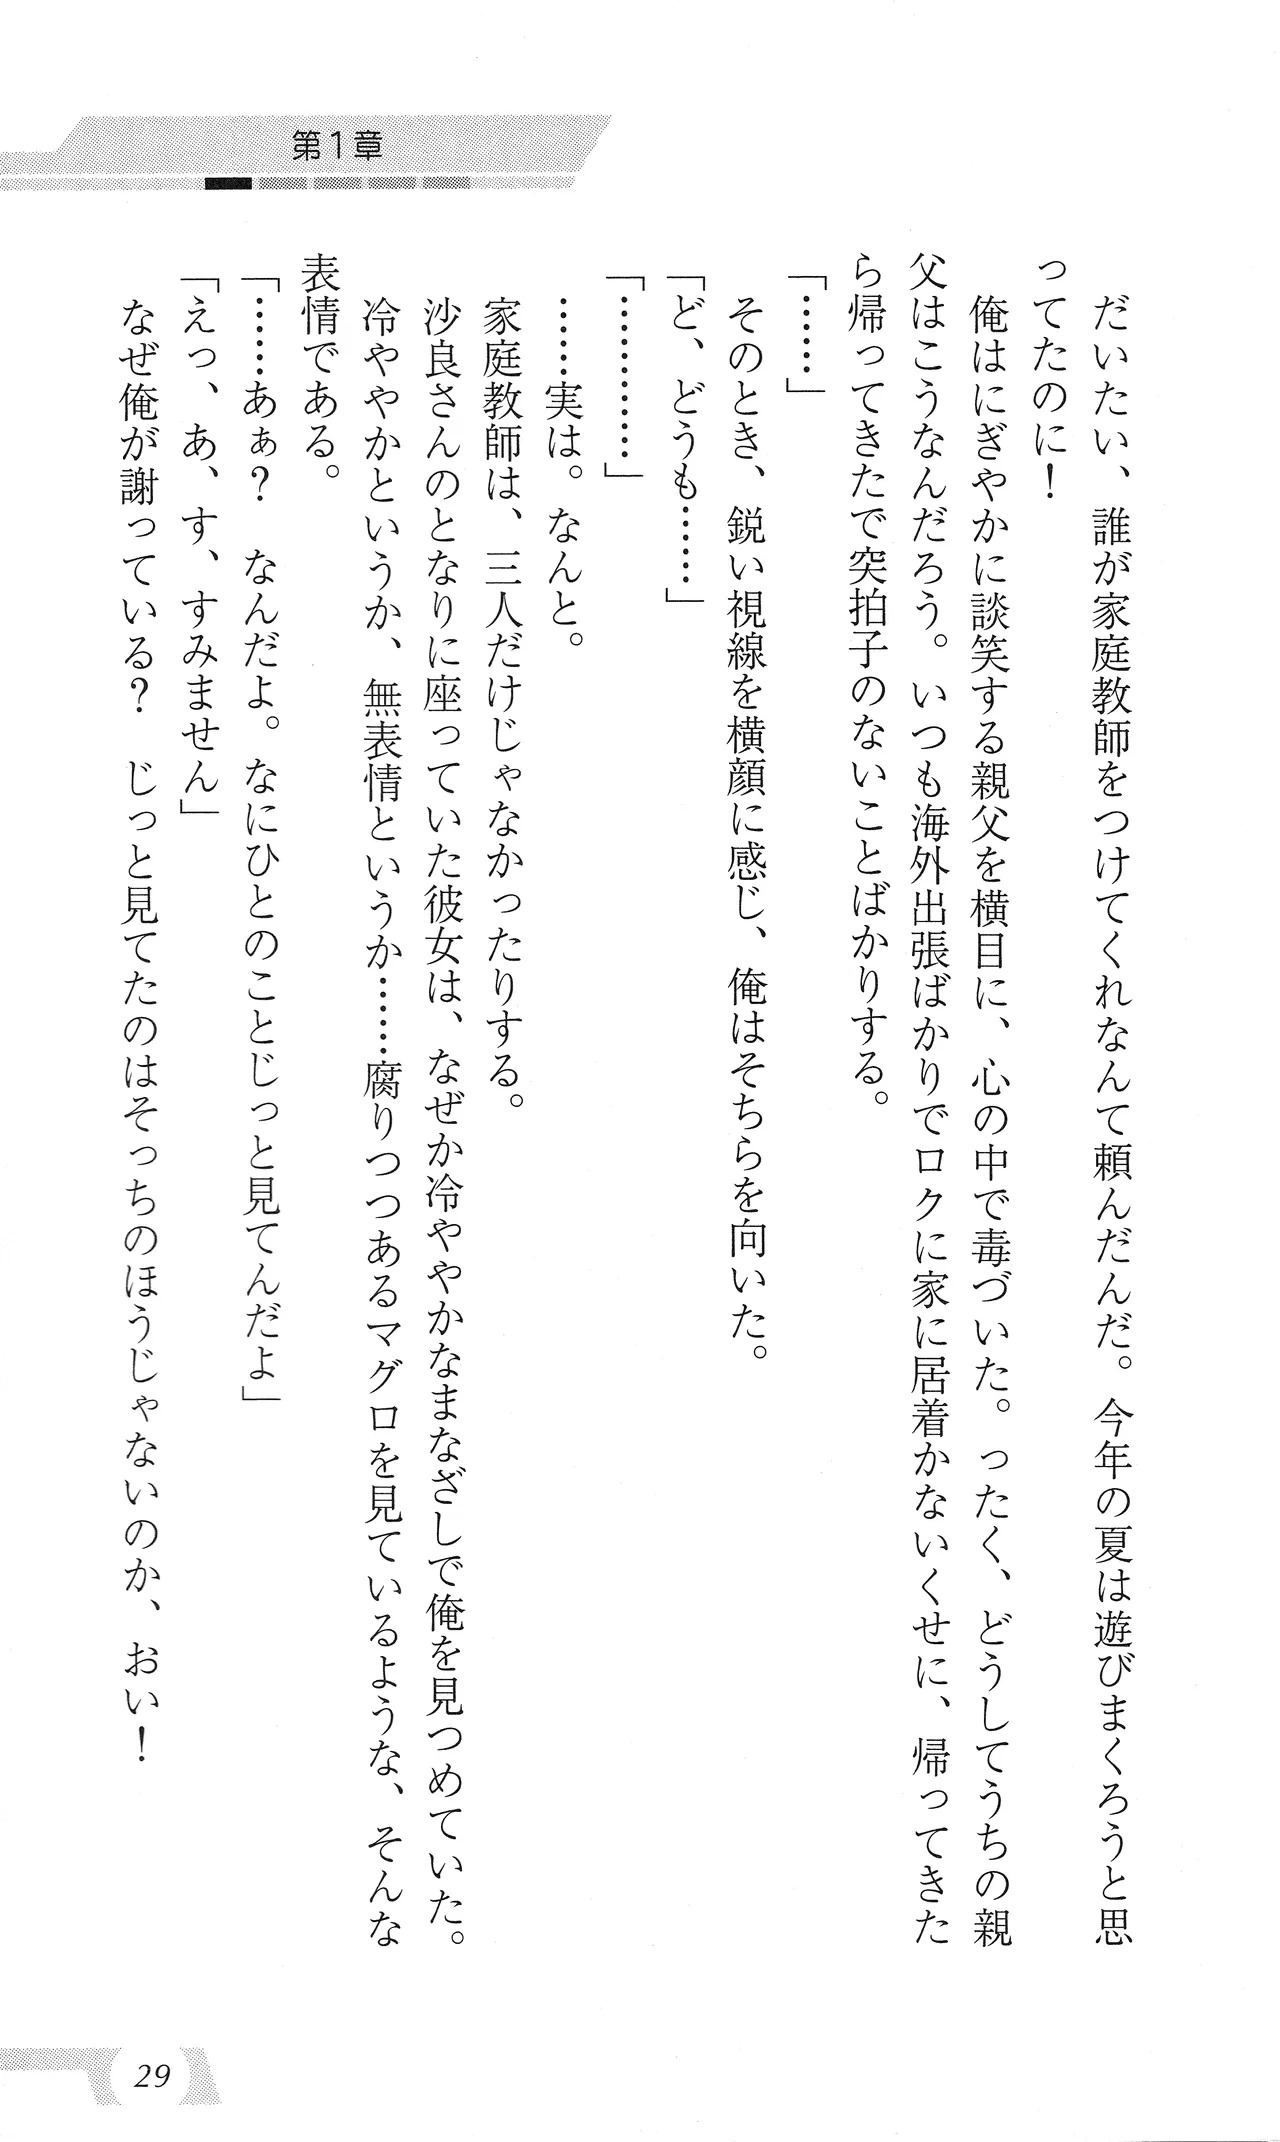 第1章
　だいたい、誰が家庭教師をつけてくれなんて頼んだんだ。今年の夏は遊びまくろうと思
ってたのに！
　俺はにぎやかに談笑する親父を横目に、心の中で毒づいた。ったく、どうしてうちの親
父はこうなんだろう。いつも海外出張ばかりでロクに家に居着かないくせに、帰ってきた
ら帰ってきたで突拍子のないことばかりする。
「……」
　そのとき、鋭い視線を横顔に感じ、俺はそちらを向いた。
「ど、どうも……」
「…………」
　……実は。なんと。
　家庭教師は、三人だけじゃなかったりする。
　沙良さんのとなりに座っていた彼女は、なぜか冷ややかなまなざしで俺を見つめていた。
　冷ややかというか、無表情というか……腐りつつあるマグロを見ているような、そんな
表情である。
「……あぁ？　なんだよ。なにひとのことじっと見てんだよ」
「えっ、あ、す、すみません」
　なぜ俺が謝っている？　じっと見てたのはそっちのほうじゃないのか、おい！
29